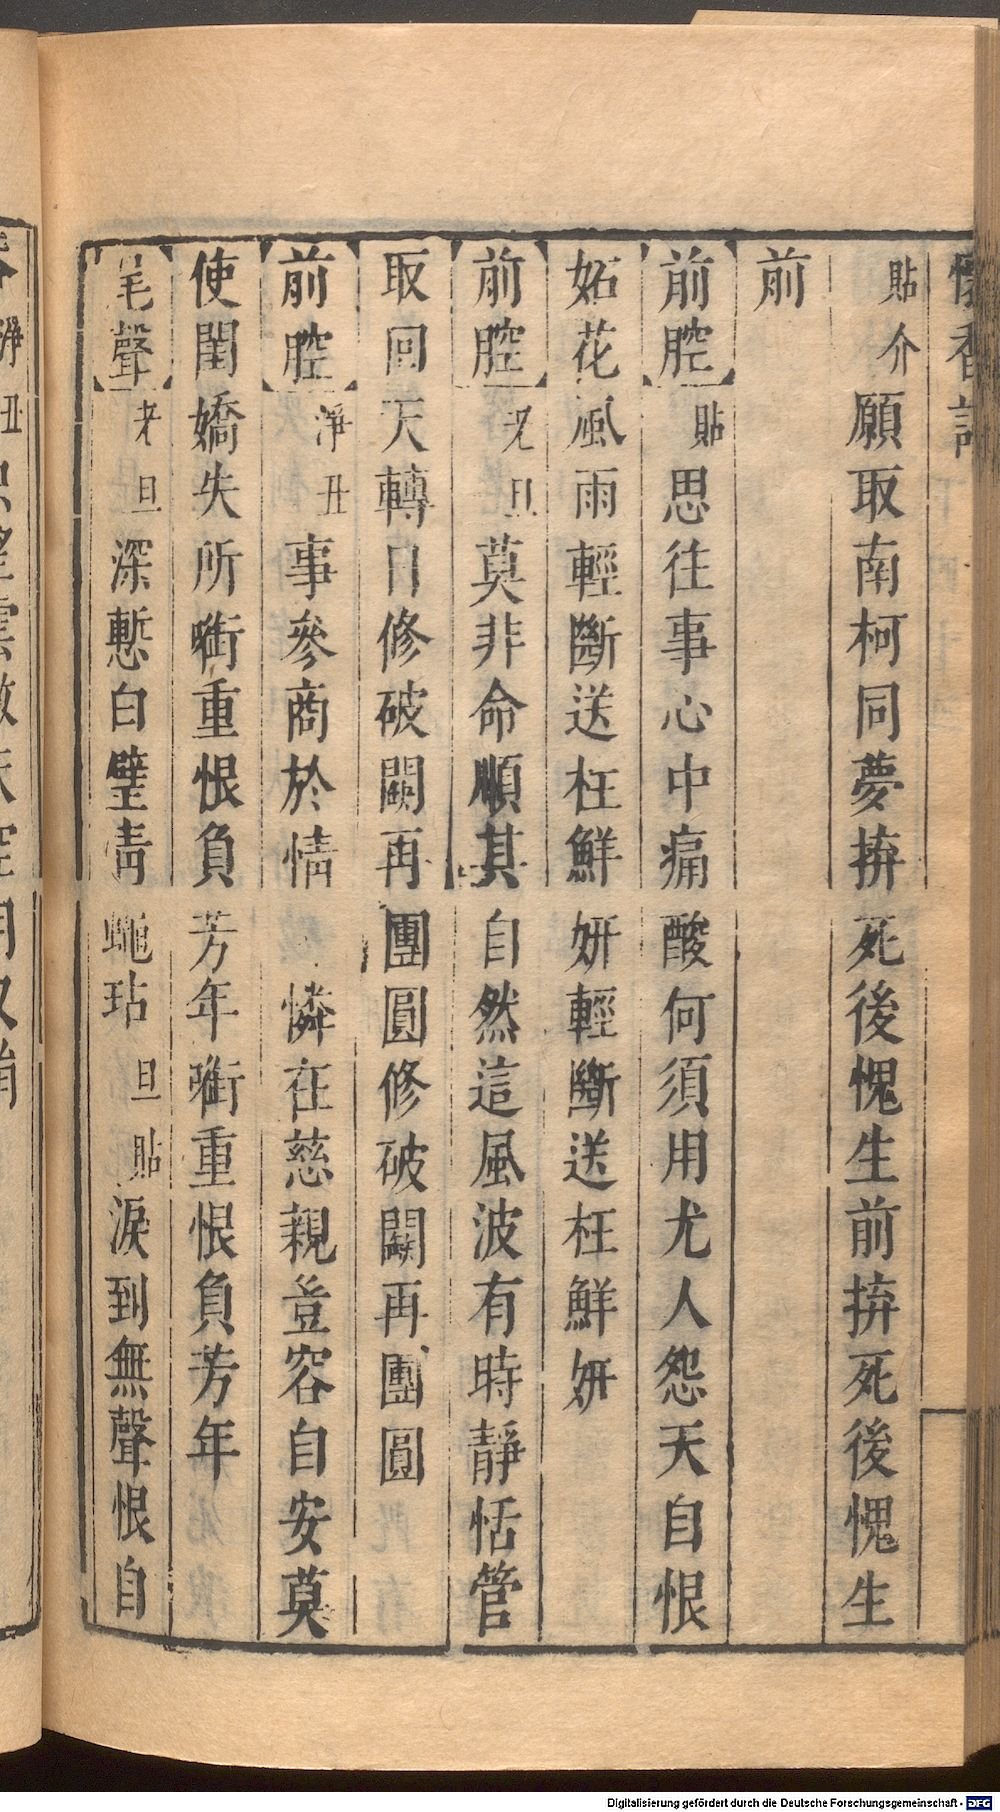 懷香記
貼介願取南柯同夢拚死後愧生前拚死後愧生
前
前腔貼思往事心中痛酸何須用尤人怨天自恨
妬花風雨輕斷送枉鮮妍輕斷送枉鮮妍
前腔老旦莫非命順其自然這風波有時靜恬管
取回天轉日修破鬬再團圓修破鬬再團圓
前腔淨丑事參商於情憐在慈親豈容自安莫
使閨嬌失所啣重恨負芳年啣重恨負芳年
尾聲老旦深慙白璧靑蠅玷旦貼淚到無聲恨自
淨丑
Digitalisierung gefördert durch die Deutsche Forschungsgemeinschaft - DFG